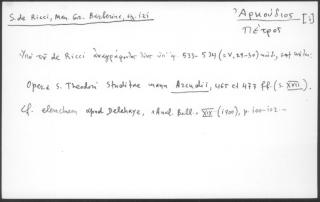 S. de Ricci, Mss. Gr. Barberini, σ. 121
Ἀρκούδιος [2]
Πέτρος
Ὑπὸ τοῦ de Ricci ἀναγράφονται ὑπ' ἀρ. 533-534 (= V, 29-30)
Opera S. Theodori Studitae manu Arcudii, 465 et 477 ff. (s. XVII).
Cf. elenchum apud Delehaye, Anal. Boll. XIX (1900), p. 100-102.